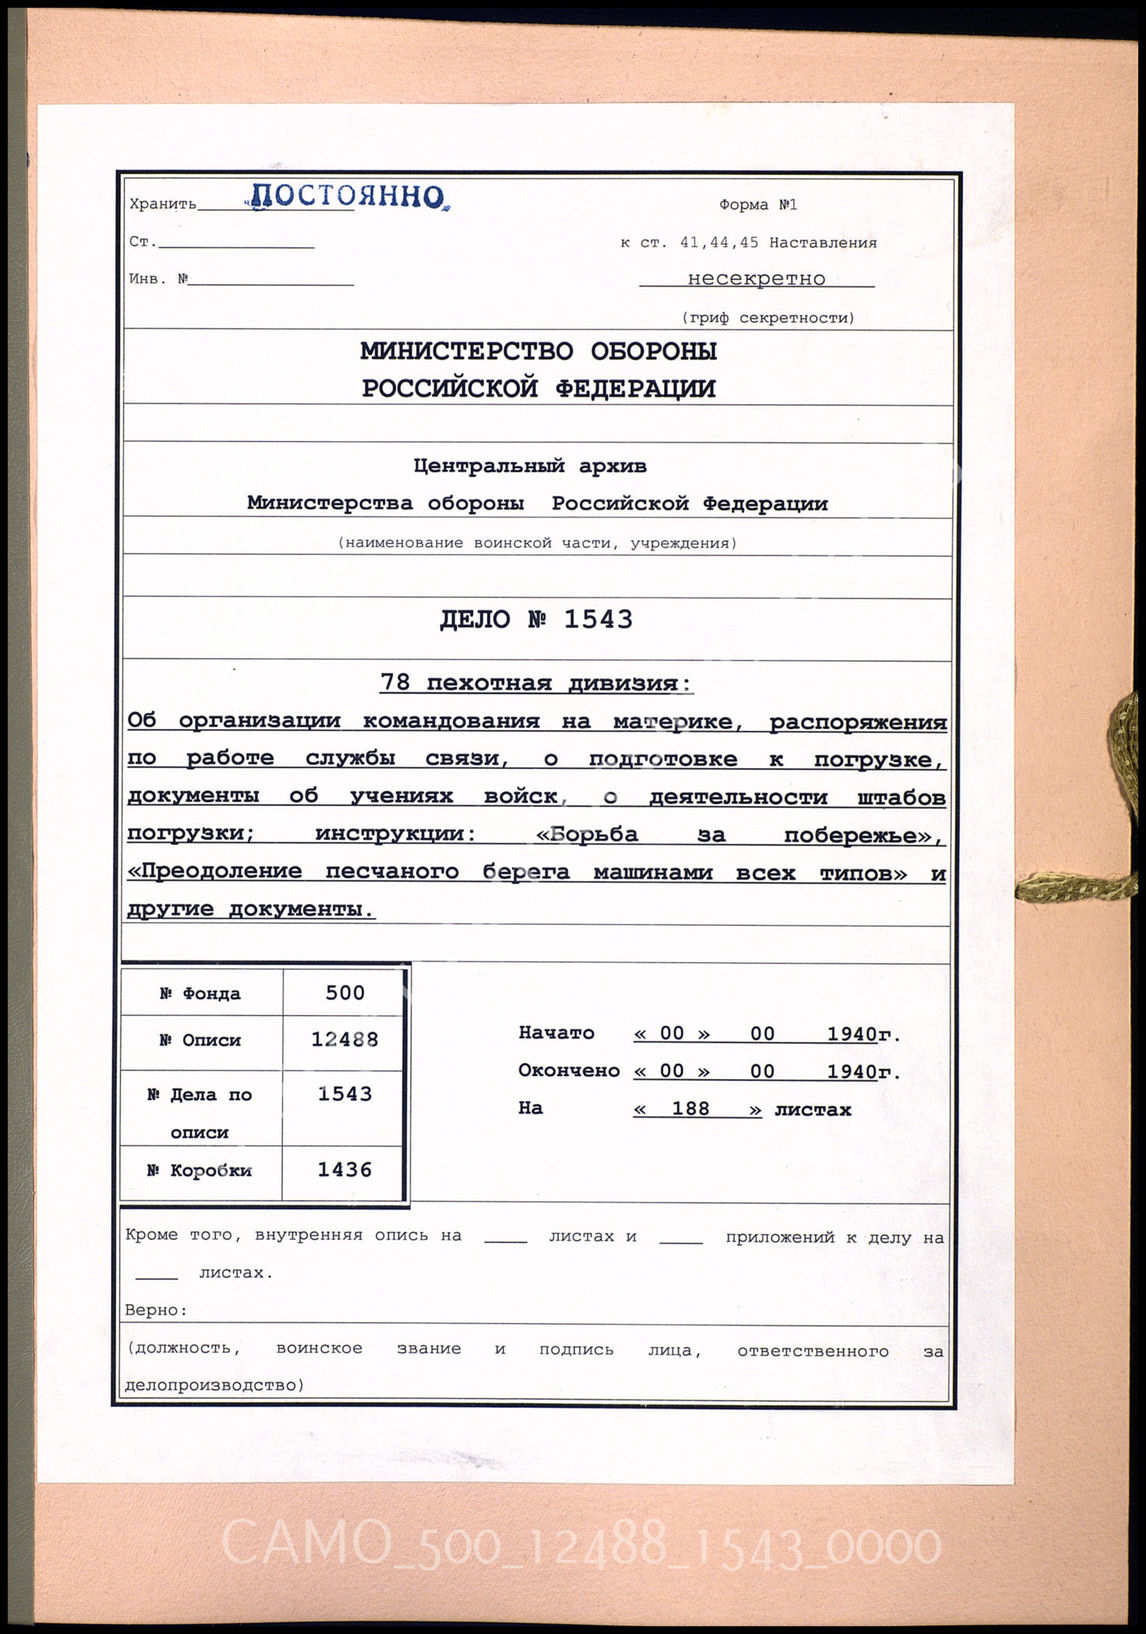 Хранить „ПОСТОЯННО„ Форма №1
Ст. к ст. 41,44,45 Наставления
Инв. № несекретно
(гриф секретности)
МИНИСТЕРСТВО ОБОРОНЫ
РОССИЙСКОЙ ФЕДЕРАЦИИ
Центральный архив
Министерства обороны Российской Федерации
(наименование воинской части, учреждения)
ДЕЛО № 1543
78 пехотная дивизия:
Об организации командования на материке, распоряжения
по работе службы связи, о подготовке к погрузке,
документы об учениях войск, о деятельности штабов
погрузки; инструкции: «Борьба за побережье»,
«Преодоление песчаного берега машинами всех типов» и
другие документы.
№ Фонда 500
№ Описи 12488
№ Дела по 1543
описи
№ Коробки 1436
Начато « 00 » 00 1940г.
Окончено « 00 » 00 1940г.
На « 188 » листах
Кроме того, внутренняя опись на ____ листах и ____ приложений к делу на
____ листах.
Верно:
(должность, воинское звание и подпись лица, ответственного за
делопроизводство)
CAMO_500_12488_1543_0000